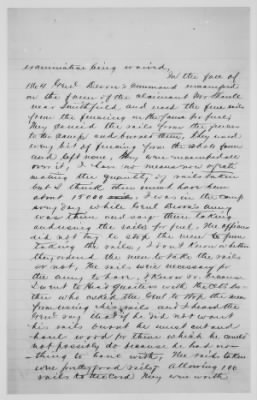 examination being waived.
In the fall of
1864 Genl Devin's command encamped
on the farm of the claimant Mr Shaull
near Smithfield, and used the fence rails
from the fencing on the farm for fuel,
They carried the rails from the fences
to the camp and burned them, They used
every bit of fencing from the whole farm
and left none, They were encamped all
over it, I have no means now of esti
mating the quantity of rails taken
but I think there must have been
about 15000 I was in the camp
every day while Genl Devin's army
was there and saw them taking
and using the rails for fuel. The officers
did not try to stop the men from
taking the rails, I don't know whether
they ordered the men to take the rails
or not, The rails were necessary for
the army to have, I know so because
I went to Head Quarters with
who asked the Genl to stop the men
from his rails and I heard the
Genl say that if he did not want
his rails burnt he must cut and
haul wood for them which he could
not possibly do because he had no-
thing to haul with, The rails taken
were pretty good rails, Allowing 100
rails to the Cord they were worth